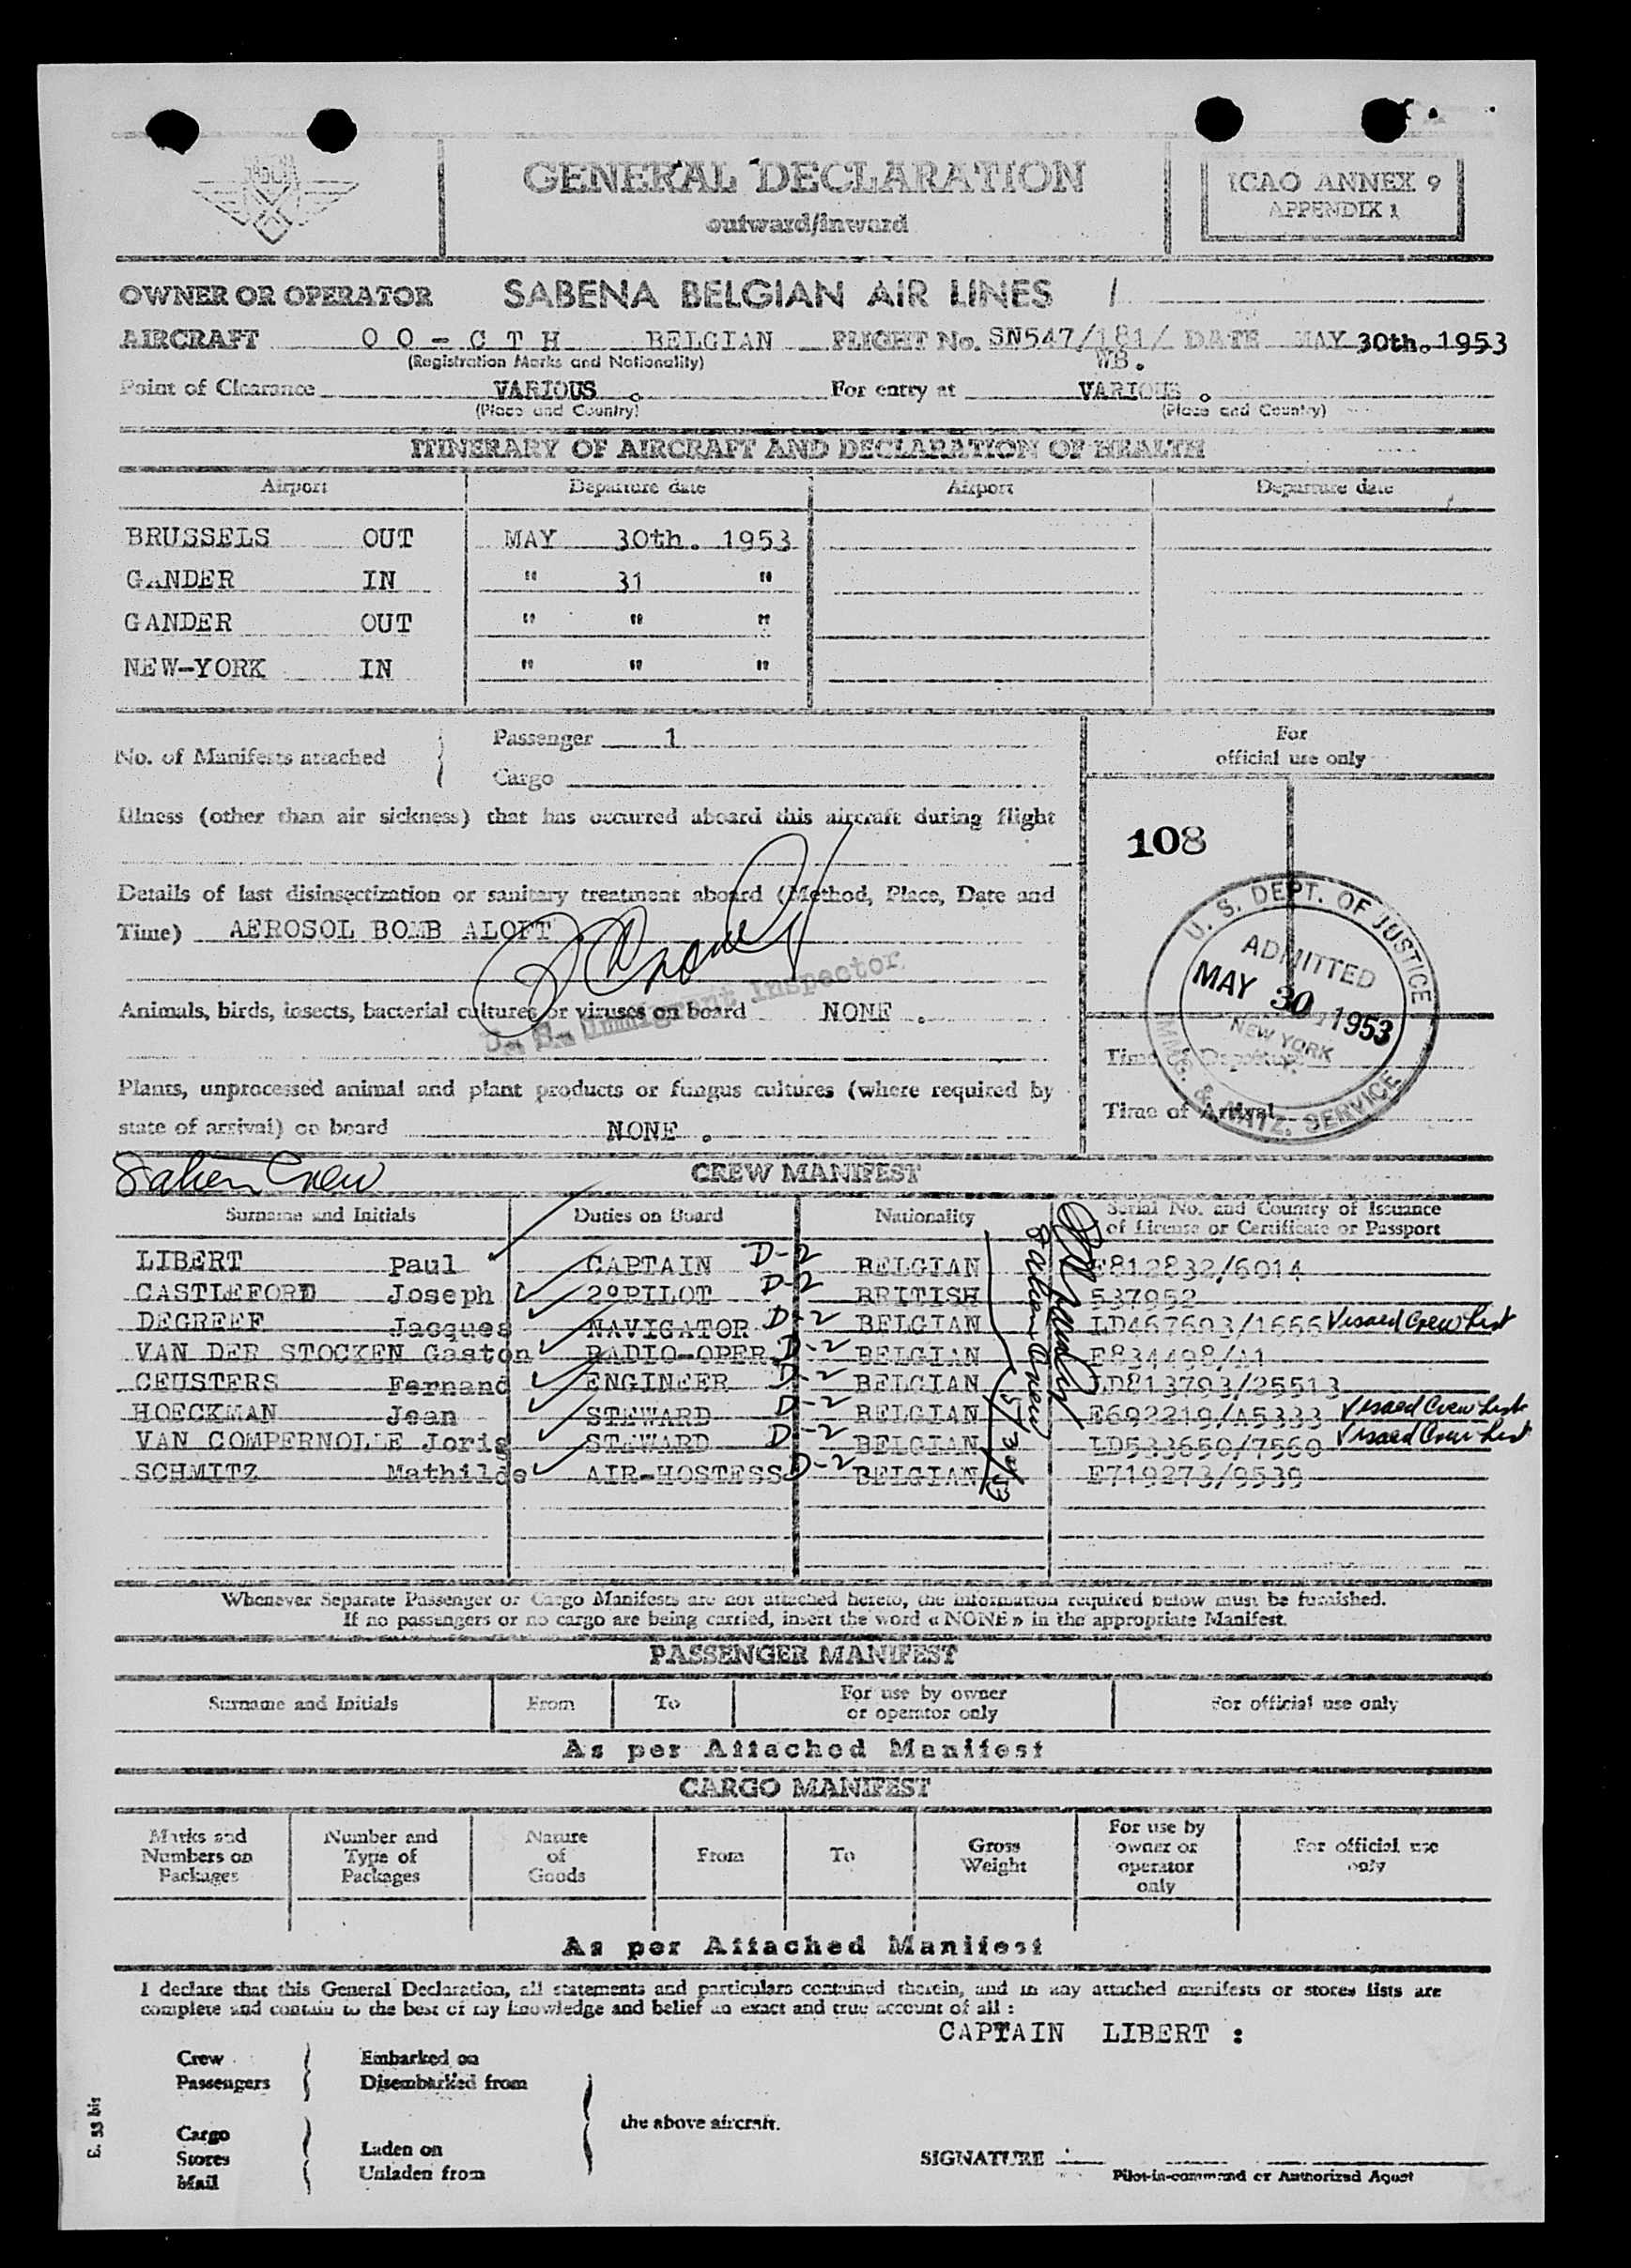 SABENA
GENERAL DECLARATION
outward/inward
ICAO ANNEX 9
APPENDIX 1
OWNER OR OPERATOR SABENA BELGIAN AIR LINES /
AIRCRAFT OO-CTH BELGIAN FLIGHT No. SN547/181/ DATE MAY 30th. 1953
(Registration Marks and Nationality) WB.
Point of Clearance VARIOUS . For entry at VARIOUS .
(Place and Country) (Place and Country)
ITINERARY OF AIRCRAFT AND DECLARATION OF HEALTH
Airport Departure date Airport Departure date
BRUSSELS OUT MAY 30th. 1953
GANDER IN " 31 "
GANDER OUT " " "
NEW-YORK IN " " "
No. of Manifests attached
Passenger 1
Cargo
For
official use only
Illness (other than air sickness) that has occurred aboard this aircraft during flight
108
Details of last disinsectization or sanitary treatment aboard (Method, Place, Date and
Time) AEROSOL BOMB ALOFT
U. S. Immigrant Inspector
Animals, birds, insects, bacterial cultures or viruses on board NONE .
U. S. DEPT. OF JUSTICE
ADMITTED
MAY 30 1953
NEW YORK
IMMIG. & NATZ. SERVICE
Time of Departure
Time of Arrival
Plants, unprocessed animal and plant products or fungus cultures (where required by
state of arrival) on board NONE .
Crew
CREW MANIFEST
Surname and Initials Duties on Board Nationality Serial No. and Country of Issuance
of License or Certificate or Passport
LIBERT Paul CAPTAIN D-2 BELGIAN E812832/6014
CASTLEFORD Joseph 2°PILOT D-2 BRITISH 537952
DEGREEF Jacques NAVIGATOR D-2 BELGIAN LD467693/1666 Visaed Crew List
VAN DER STOCKEN Gaston RADIO-OPER. D-2 BELGIAN E834498/A1
CEUSTERS Fernand ENGINEER D-2 BELGIAN LD813793/25513
HOECKMAN Jean STEWARD D-2 BELGIAN E692219/A5333 Visaed Crew List
VAN COMPERNOLLE Joris STEWARD D-2 BELGIAN LD533650/7560 Visaed Crew List
SCHMITZ Mathilde AIR-HOSTESS D-2 BELGIAN E719273/9539
5/30/53
Whenever Separate Passenger or Cargo Manifests are not attached hereto, the information required below must be furnished.
If no passengers or no cargo are being carried, insert the word « NONE » in the appropriate Manifest.
PASSENGER MANIFEST
Surname and Initials From To For use by owner
or operator only For official use only
As per Attached Manifest
CARGO MANIFEST
Marks and
Numbers on
Packages
Number and
Type of
Packages
Nature
of
Goods
From
To
Gross
Weight
For use by
owner or
operator
only
For official use
only
As per Attached Manifest
I declare that this General Declaration, all statements and particulars contained therein, and in any attached manifests or stores lists are
complete and contain to the best of my knowledge and belief an exact and true account of all :
CAPTAIN LIBERT :
Crew
Passengers
Embarked on
Disembarked from
the above aircraft.
Cargo
Stores
Mail
Laden on
Unladen from
SIGNATURE :
Pilot-in-command or Authorized Agent
E. 33 bis